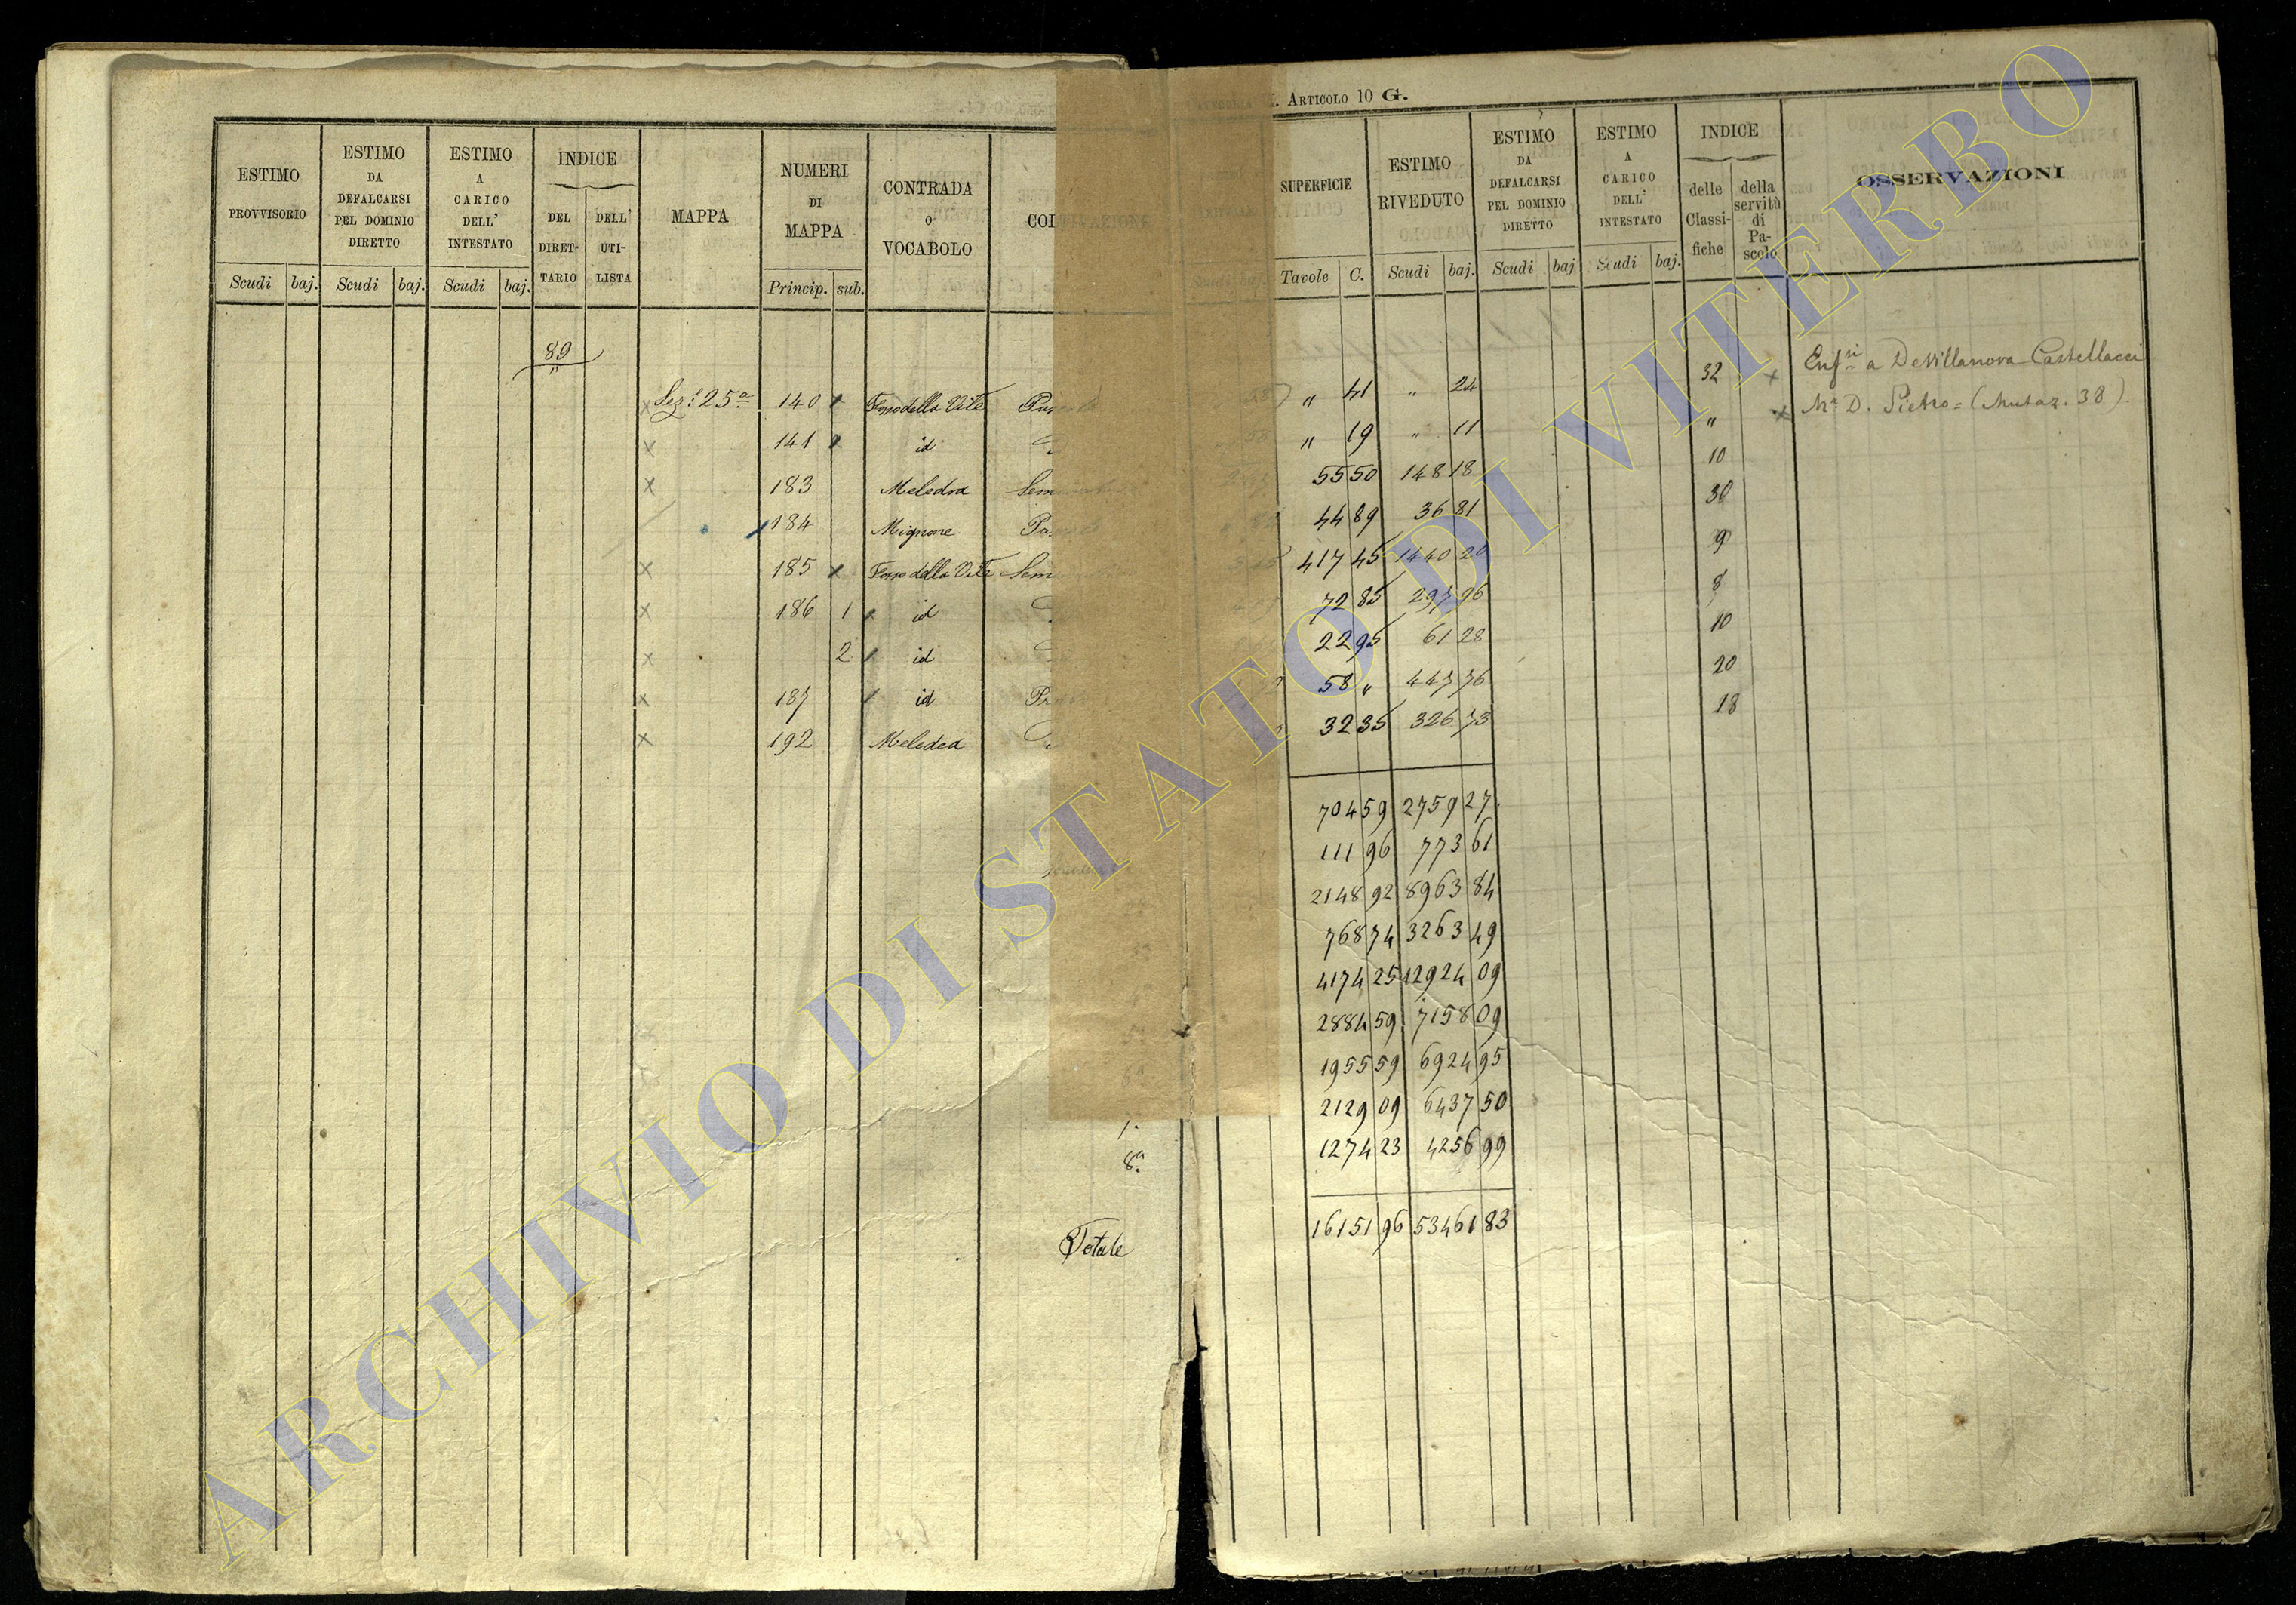 Articolo 10 G.
ESTIMO PROVVISORIO Scudi baj.
ESTIMO DA DEFALCARSI PEL DOMINIO DIRETTO Scudi baj.
ESTIMO A CARICO DELL' INTESTATO Scudi baj.
INDICE DEL DIRETTARIO DELL' UTILISTA
MAPPA
NUMERI DI MAPPA Princip. sub.
CONTRADA o VOCABOLO
SUPERFICIE Tavole C.
ESTIMO RIVEDUTO Scudi baj.
ESTIMO DA DEFALCARSI PEL DOMINIO DIRETTO Scudi baj
ESTIMO A CARICO DELL' INTESTATO Scudi baj.
INDICE delle Classifiche della servitù di Pascolo
OSSERVAZIONI
89
"
Sez. 25ª 140 Fosso della Vite " 41 " 24 32 a DeVillanova Castellacci
141 id " 19 " 11 " Mª D. Pietro = (Mutaz. 38)
183 Meledra 55 50 148 18 10
184 Mignone 44 89 36 81 30
185 Fosso della Vite 417 45 1440 20 9
186 1 id 72 85 297 96 8
2 id 22 95 61 28 10
187 id 58 " 447 76 20
192 Meledra 32 35 326 73 18
704 59 2759 27
111 96 773 61
2148 92 8963 84
768 74 3263 49
4174 25 12924 09
2884 59 7158 09
1955 59 6924 95
2129 09 6437 50
8ª 1274 23 4256 99
Totale 16151 96 53461 83
ARCHIVIO DI STATO DI VITERBO